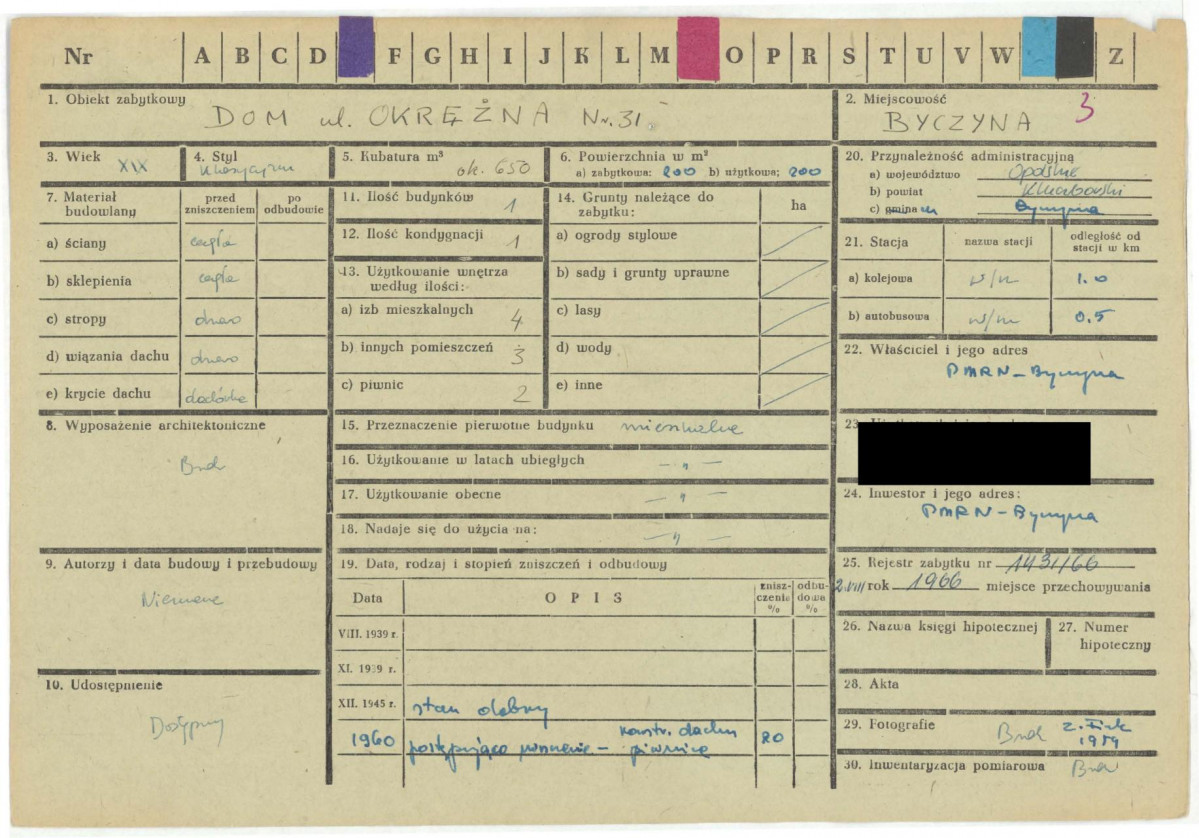 Nr A B C D F G H I J K L M O P R S T U V W Z
1. Obiekt zabytkowy
DOM ul. OKRĘŻNA Nr. 31.
2. Miejscowość 3
BYCZYNA
3. Wiek
XIX
4. Styl
5. Kubatura m³
ok. 650
6. Powierzchnia w m²
a) zabytkowa: 200 b) użytkowa; 200
7. Materiał budowlany
przed zniszczeniem
po odbudowie
a) ściany cegła
b) sklepienia cegła
c) stropy drewo
d) wiązania dachu drewo
e) krycie dachu dachówka
8. Wyposażenie architektoniczne
Brak
9. Autorzy i data budowy i przebudowy
Nieznane
10. Udostępnienie
Dostępny
11. Ilość budynków 1
12. Ilość kondygnacji 1
13. Użytkowanie wnętrza według ilości:
a) izb mieszkalnych 4
b) innych pomieszczeń 3
c) piwnic 2
14. Grunty należące do zabytku:
ha
a) ogrody stylowe
b) sady i grunty uprawne
c) lasy
d) wody
e) inne
15. Przeznaczenie pierwotne budynku mieszkalne
16. Użytkowanie w latach ubiegłych — „ —
17. Użytkowanie obecne — „ —
18. Nadaje się do użycia na: — „ —
19. Data, rodzaj i stopień zniszczeń i odbudowy
Data
OPIS
zniszczenie %
odbudowa %
VIII. 1939 r.
XI. 1939 r.
XII. 1945 r. stan dobry
1960 postępujące niszczenie – konstr. dachu piwnice 20
20. Przynależność administracyjną
a) województwo Opolskie
b) powiat Kluczborski
c) gmina Byczyna
21. Stacja
nazwa stacji
odległość od stacji w km
a) kolejowa w/m 1.0
b) autobusowa w/m 0.5
22. Właściciel i jego adres
PMRN – Byczyna
23.
24. Inwestor i jego adres:
PMRN – Byczyna
25. Rejestr zabytku nr 1431/66
2.VIII rok 1966 miejsce przechowywania
26. Nazwa księgi hipotecznej
27. Numer hipoteczny
28. Akta
29. Fotografie Brak
30. Inwentaryzacja pomiarowa Brak